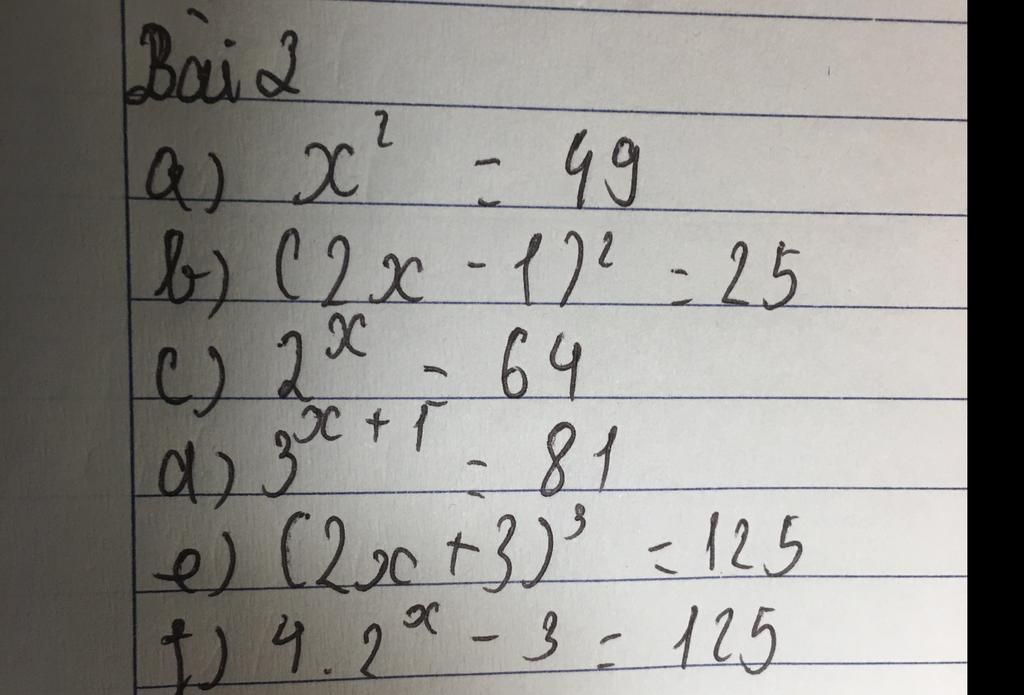 Bài 2
a) x² = 49
b) (2x - 1)² = 25
c) 2^x = 64
d) 3^x + 1 = 81
e) (2x + 3)³ = 125
f) 4 . 2^x - 3 = 125